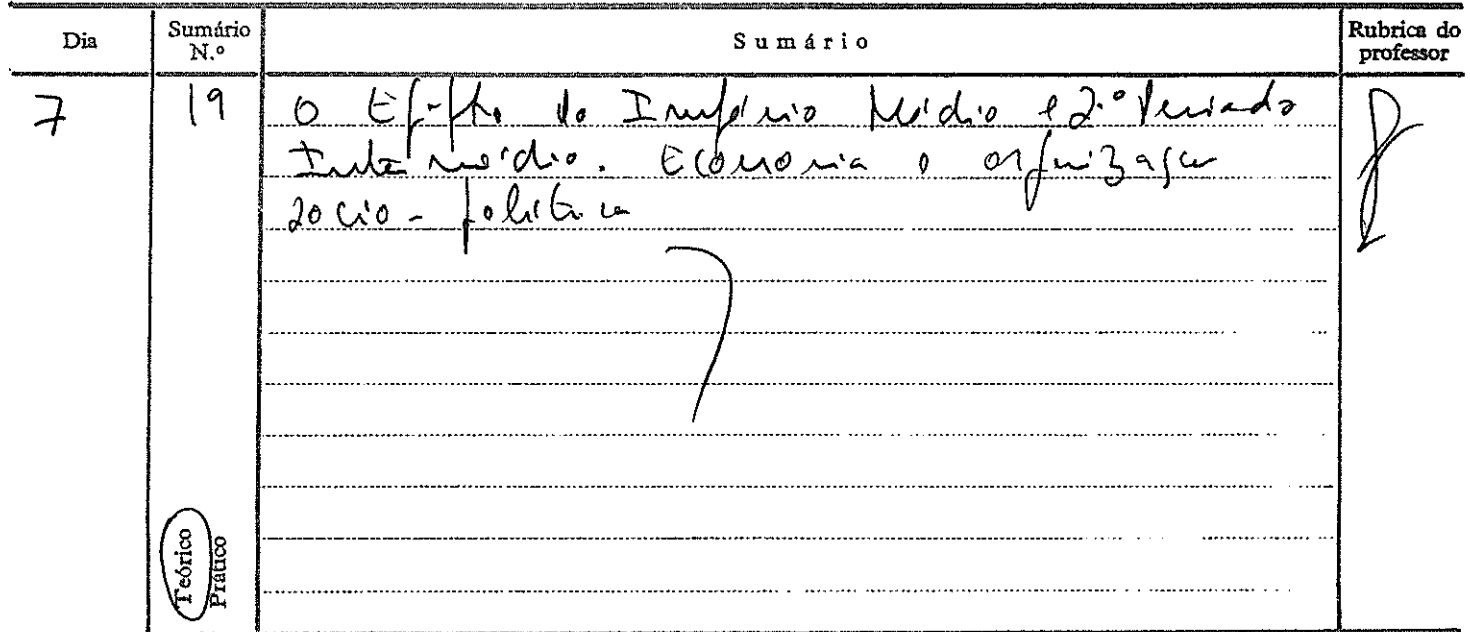 Dia
Sumário N.º
Sumário
Rubrica do professor
7
19
O Egipto do Império Médio e 2.º Período
Intermédio. Economia e organização
socio-política
Teórico
Prático